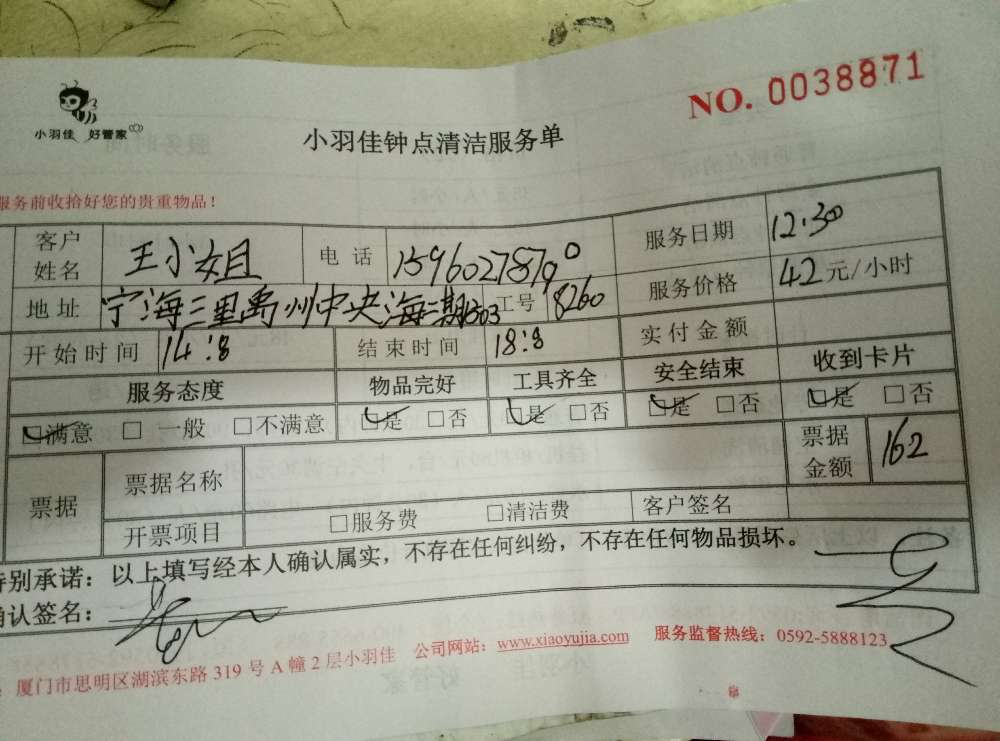 小羽佳 好管家
NO. 0038871
小羽佳钟点清洁服务单
服务前收拾好您的贵重物品！
客户姓名 王小姐 电话 15960278790 服务日期 12.30
地址 宁海三里禹州中央海二期1303 工号 18260 服务价格 42元/小时
开始时间 14:8 结束时间 18:8 实付金额
服务态度 物品完好 工具齐全 安全结束 收到卡片
☑满意 □ 一般 □不满意 ☑是 □否 ☑是 □否 ☑是 □否 ☑是 □否
票据 票据名称 票据金额 162
开票项目 □服务费 □清洁费 客户签名
特别承诺：以上填写经本人确认属实，不存在任何纠纷，不存在任何物品损坏。
确认签名：
：厦门市思明区湖滨东路319号A幢2层小羽佳 公司网站：www.xiaoyujia.com 服务监督热线：0592-5888123